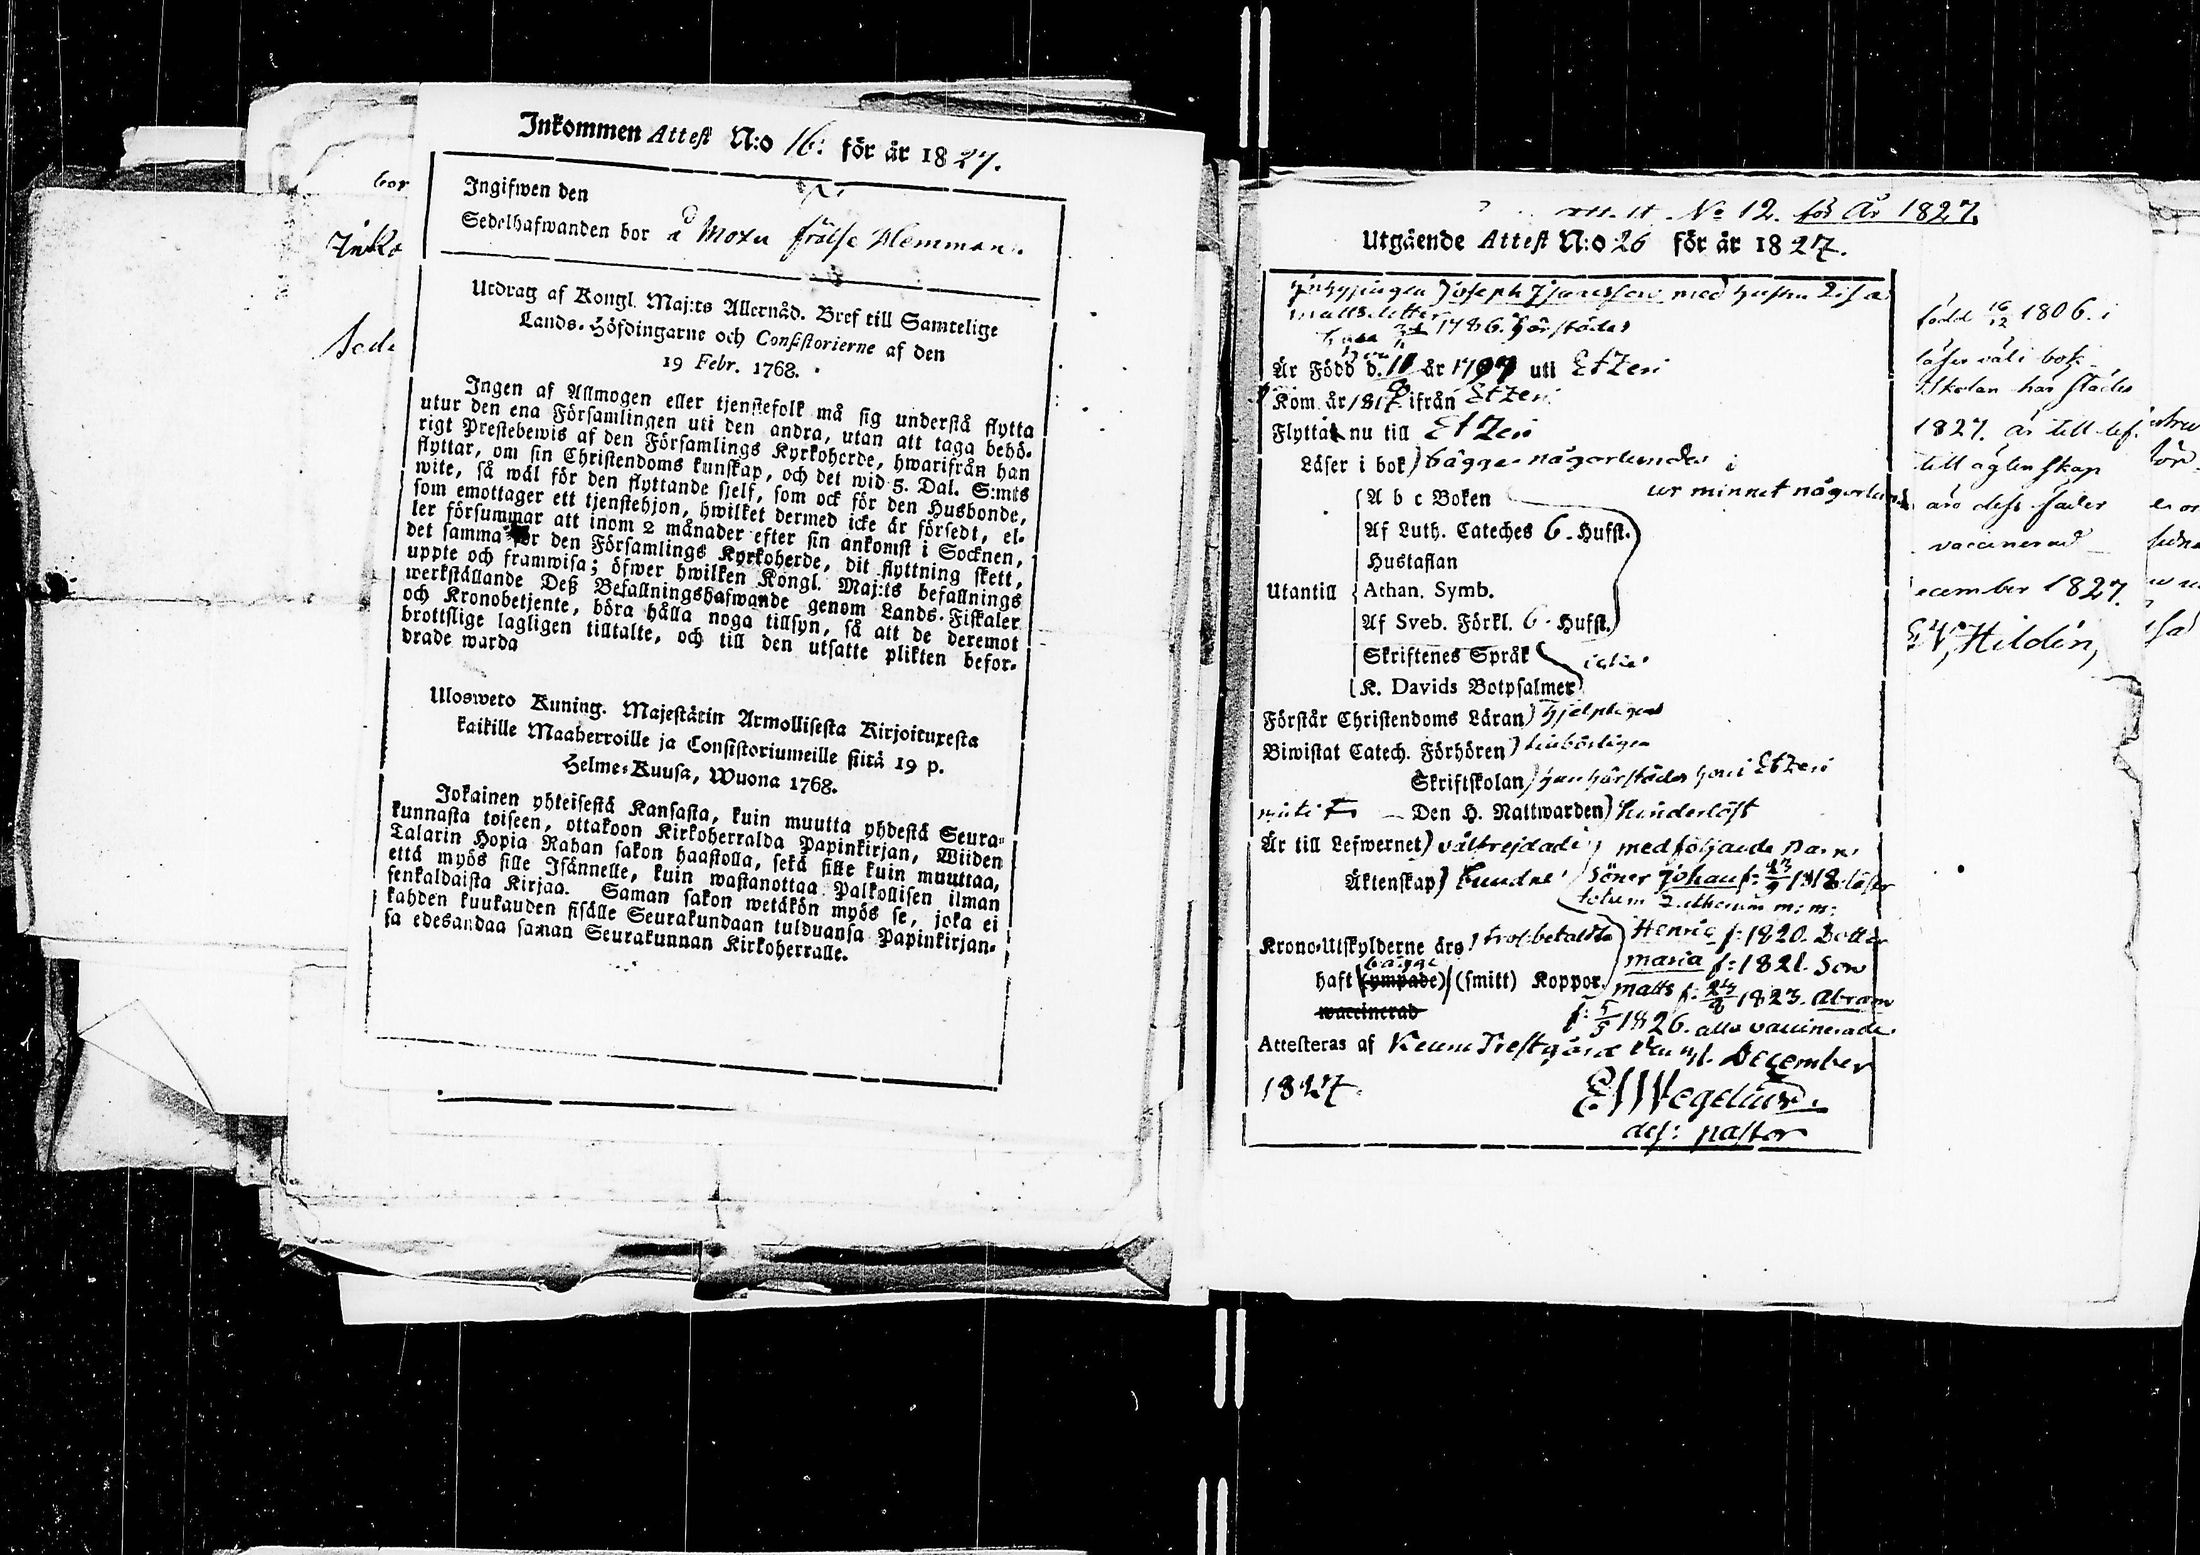 bor
Inko
Sede
Inkommen Attest N:o 16: för år 1827.
Ingifwen den
Sedelhafwanden bor å Moxu frälse Hemman.
Utdrag af Kongl. Maj:ts Allernåd. Bref till Samtelige
Lands-Höfdingarne och Consistorierne af den
19 Febr. 1768.
Ingen af Allmogen eller tjenstefolk må sig understå flytta
utur den ena Församlingen uti den andra, utan att taga behö-
rigt Prestebewis af den Församlings Kyrkoherde, hwarifrån han
flyttar, om sin Christendoms kunskap, och det wid 5. Dal. S:mts
wite, så wäl för den flyttande sielf, som ock för den Husbonde,
som emottager ett tjenstehjon, hwilket dermed icke är försedt, el-
ler försummar att inom 2 månader efter sin ankomst i Socknen,
det samma för den Församlings Kyrkoherde, dit flyttning skett,
uppte och framwisa; öfwer hwilken Kongl. Maj:ts befallnings
werkställande Deß Befallningshafwande genom Lands-Fiskaler
och Kronobetjente, böra hålla noga tillsyn, så att de deremot
brottslige lagligen tilltalte, och till den utsatte plikten befor-
drade warda
Uloswето Kuning. Majestätin Armollisesta Kirjoituxesta
kaikille Maaherroille ja Consistoriumeille siitä 19 p.
Helme-Kuusa, Wuona 1768.
Jokainen yhteisestä Kansasta, kuin muutta yhdestä Seura-
kunnasta toiseen, ottakoon Kirkoherralda Papinkirjan, Wiiden
Talarin Hopia Rahan sakon haastolla, sekä sille kuin muuttaa,
että myös sille Isännelle, kuin wastanottaa Palkollisen ilman
senkaldaista Kirjaa. Saman sakon wetäkön myös se, joka ei
kahden kuukauden sisälle Seurakundaan tulduansa Papinkirjan-
sa edesandaa saman Seurakunnan Kirkoherralle.
No 12. för År 1827.
Utgående Attest N:o 26 för år 1827.
Inhysingen Joseph Isaacsson med hustru Lisa
Mattsdotter
1786. härstädes
Är Född d. 11 år 1797 uti Etzeri
Kom år 1817 ifrån Etzeri
Flyttar nu till Etzeri
Läser i bok) bägge någorlunda
ur minnet någorlunda
A b c Boken
Af Luth. Cateches 6. Hufst.
Hustaflan
Utantill Athan. Symb.
Af Sveb. Förkl. 6. Hufst.
Skriftenes Språk
K. Davids Botpsalmer
Förstår Christendoms Läran) hjelpligen
Biwistat Catech. Förhören)
Skriftskolan) han härstädes hon i Etzeri
Den H. Nattwarden) hinderlöst
Är till Lefwernet) välfrejdade; med följande Barn:
Äktenskap) bundne Söner Johan f: 23/9 1818 läser
totum Lutherum m: m:
Krono-Utskylderne äro) Henric f: 1820. Dotter
Maria f: 1821. Son
bägge
haft (ympade) (smitt) Koppor. Matts f: 1823. Abram
waccinerad f: 5/5 1826. alla vaccinerade
Attesteras af Keuru Prestgård den December
1827.
E Wegelius.
def: pastor
född 16/12 1806. i
läser väl i bok
skolan härstädes
1827. är till lef-
till ägtenskap
äro dess fader
vaccinerad
ecember 1827.
Hildén,